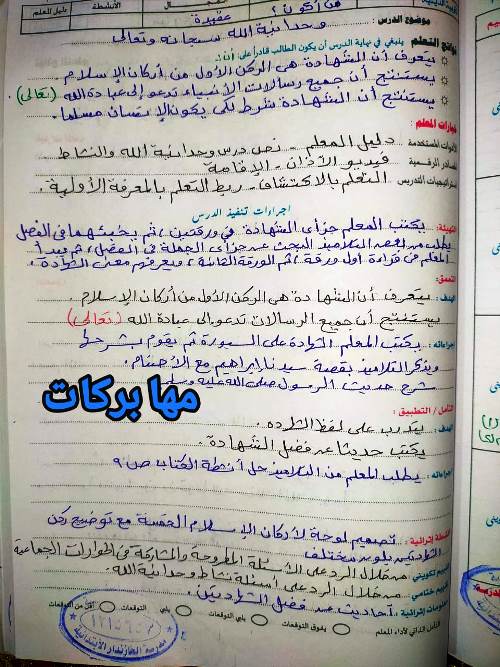 من أكون ؟ عقيدة
الأنشطة دليل المعلم
موضوع الدرس: وحدانية الله سبحانه وتعالى
نواتج التعلم ينبغي في نهاية الدرس أن يكون الطالب قادراً على أن:
يتعرف أن الشهادة هى الركن الأول من أركان الإسلام.
يستنتج أن جميع رسالات الأنبياء تدعو إلى عبادة الله (تعالى)
يستنتج أن الشهادة شرط لكى يكون الإنسان مسلما.
المعلم:
الأدوات المستخدمة دليل المعلم - نص درس وحدانية الله والنشاط
الرقمية فيديو الأذان - الإقامة
التدريس التعلم بالاكتشاف - ربط التعلم بالمعرفة الأولية.
اجراءات تنفيذ الدرس
التهيئة: يكتب المعلم جزأى الشهادة فى ورقتين، ثم يخبئهما فى الفصل
يطلب من بعض التلاميذ البحث عن جزأى الجملة فى الفصل، ثم يبدأ
المعلم فى قراءة أول ورقة، ثم الورقة الثانية، ويعرفهم معنى الشهادة.
التعمق:
الهدف: يتعرف أن الشهادة هى الركن الأول من أركان الإسلام.
يستنتج أن جميع الرسالات تدعو إلى عبادة الله (تعالى)
اجراءاته: يكتب المعلم الشهادة على السبورة ثم يقوم بشرحها
ويذكر التلاميذ بقصة سيدنا إبراهيم مع الأصنام.
شرح حديث الرسول صلى الله عليه وسلم
مها بركات
التأمل / التطبيق:
الهدف: يتدرب على لفظ الشهادة.
يكتب حديثا عن فضل الشهادة.
اجراءاته: يطلب المعلم من التلاميذ حل أنشطة الكتاب ص ٩
أنشطة إثرائية: تصميم لوحة لأركان الإسلام الخمسة مع توضيح ركن
الشهادتين بلون مختلف
تقويم تكويني من خلال الرد على الأسئلة المطروحة والمشاركة فى الحوارات الجماعية
تقويم ختامي من خلال الرد على أسئلة نشاط وحدانية الله.
معلومات إثرائية: أحاديث عن فضل الشهادتين.
التأمل الذاتي لأداء المعلم يفوق التوقعات يلبي التوقعات يلبي التوقعات أقل من التوقعات
مدرسة الابتدائية